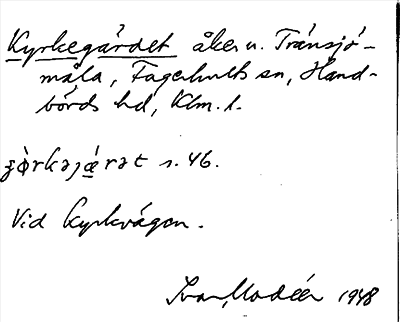 Kyrkegärdet åker u. Transjö-
måla, Fagerhults sn, Hand-
börds hd, Klm. l.
s. 46.
Vid Kyrkvägen.
Ivar Modéer 1948